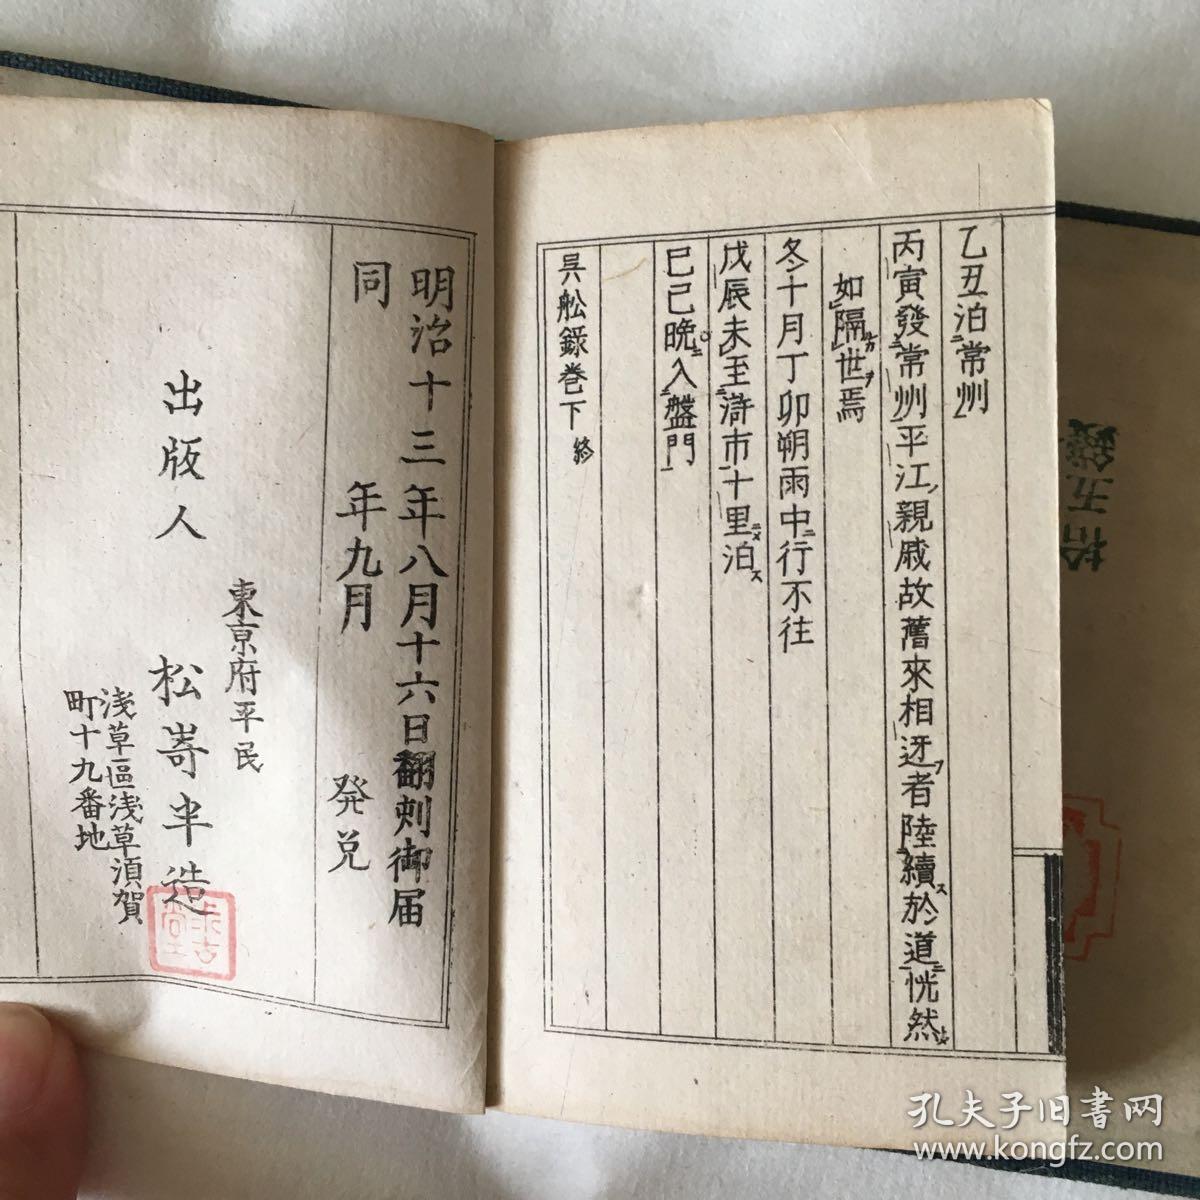 乙丑泊常州
丙寅發常州平江親戚故舊來相迓者陸續於道恍然
如隔世焉
冬十月丁卯朔雨中行不往
戊辰未至滸市十里泊
巳己晩入盤門
吳舩錄卷下 終
明治十三年八月十六日翻刻御届
同年九月發兌
東亰府平民
出版人 松嵜半造
浅草區浅草須賀
町十九番地
拾五錢
孔夫子旧書网
www.kongfz.com